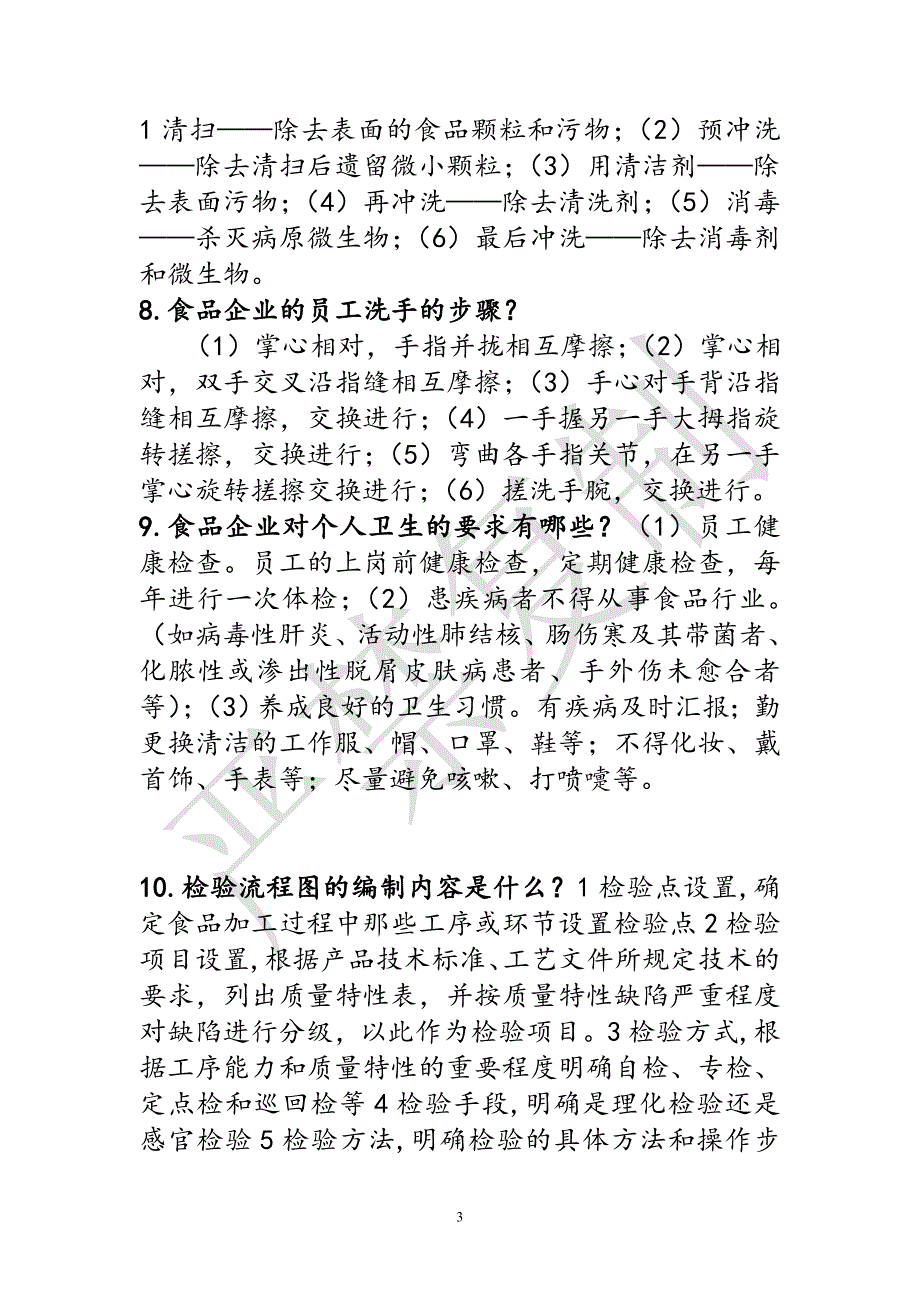 1 清扫——除去表面的食品颗粒和污物；（2）预冲洗
——除去清扫后遗留微小颗粒；（3）用清洁剂——除
去表面污物；（4）再冲洗——除去清洗剂；（5）消毒
——杀灭病原微生物；（6）最后冲洗——除去消毒剂
和微生物。
8.食品企业的员工洗手的步骤？
（1）掌心相对，手指并拢相互摩擦；（2）掌心相
对，双手交叉沿指缝相互摩擦；（3）手心对手背沿指
缝相互摩擦，交换进行；（4）一手握另一手大拇指旋
转搓擦，交换进行；（5）弯曲各手指关节，在另一手
掌心旋转搓擦交换进行；（6）搓洗手腕，交换进行。
9.食品企业对个人卫生的要求有哪些？（1）员工健
康检查。员工的上岗前健康检查，定期健康检查，每
年进行一次体检；（2）患疾病者不得从事食品行业。
（如病毒性肝炎、活动性肺结核、肠伤寒及其带菌者、
化脓性或渗出性脱屑皮肤病患者、手外伤未愈合者
等）；（3）养成良好的卫生习惯。有疾病及时汇报；勤
更换清洁的工作服、帽、口罩、鞋等；不得化妆、戴
首饰、手表等；尽量避免咳嗽、打喷嚏等。
10.检验流程图的编制内容是什么？1 检验点设置,确
定食品加工过程中那些工序或环节设置检验点 2 检验
项目设置,根据产品技术标准、工艺文件所规定技术的
要求，列出质量特性表，并按质量特性缺陷严重程度
对缺陷进行分级，以此作为检验项目。3 检验方式,根
据工序能力和质量特性的重要程度明确自检、专检、
定点检和巡回检等 4 检验手段,明确是理化检验还是
感官检验 5 检验方法,明确检验的具体方法和操作步
3
严禁复制